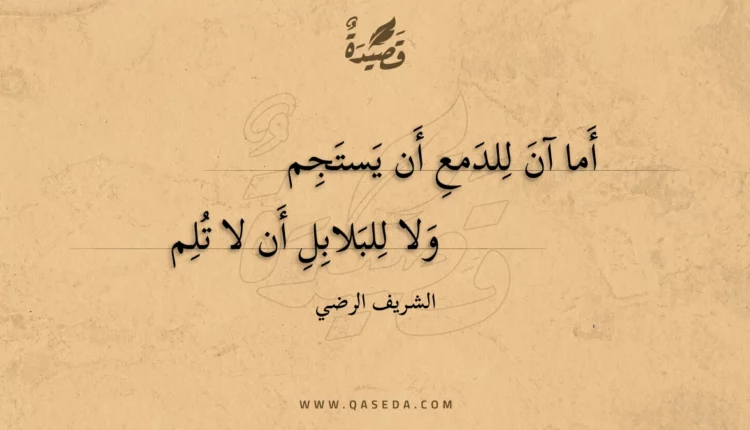 قَصِيدَةٌ
أَما آنَ لِلدَمعِ أَن يَستَجِم
وَلا لِلبَلابِلِ أَن لا تُلِم
الشريف الرضي
WWW.QASEDA.COM